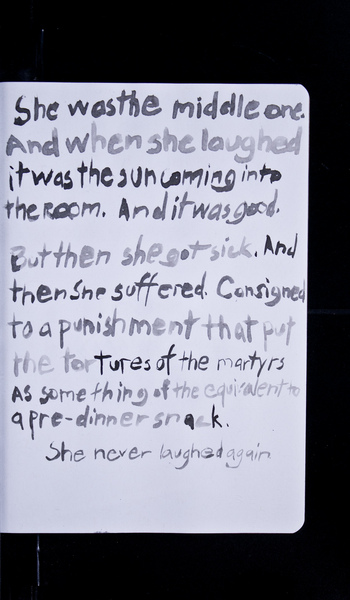 She was the middle one.
And when she laughed
it was the sun coming into
the room. And it was good.
But then she got sick. And
then she suffered. Consigned
to a punishment that put
the tortures of the martyrs
As something of the equivalent to
a pre-dinner snack.
She never laughed again